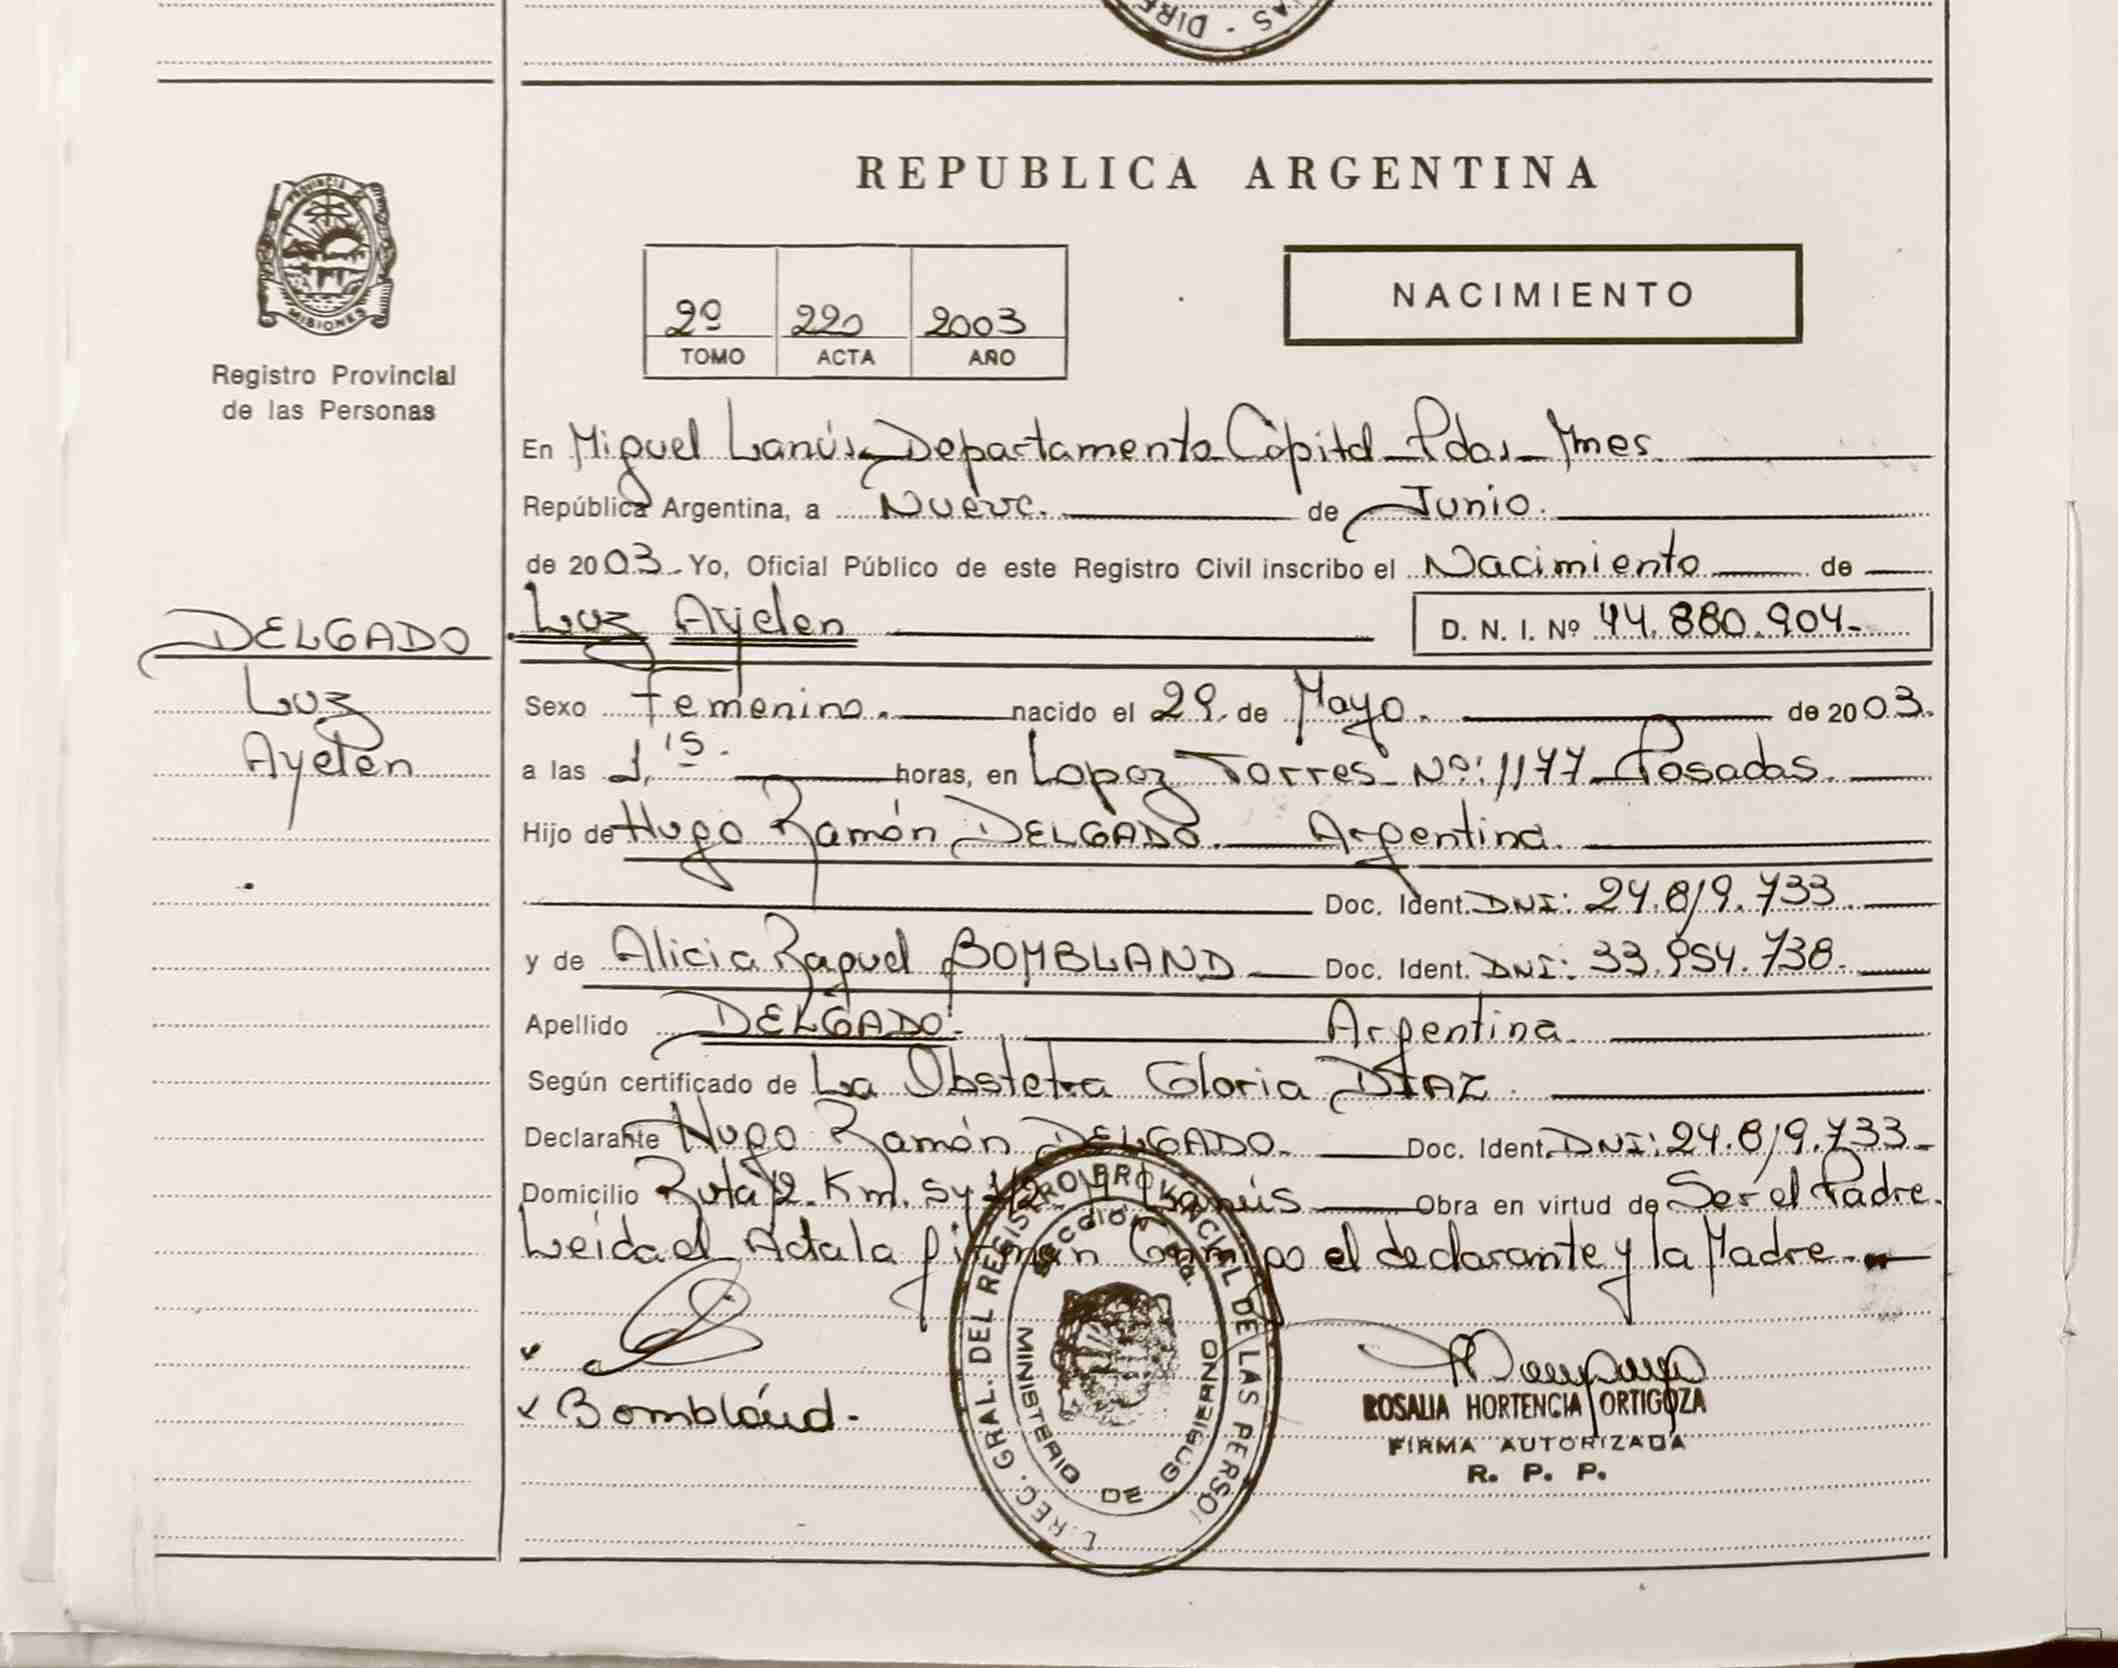 AS - DIRE
REPUBLICA ARGENTINA
PROVINCIA
MISIONES
Registro Provincial
de las Personas
NACIMIENTO
2º 220 2003
TOMO ACTA AÑO
En Miguel Lanús Departamento Capital Pdas Mnes.
República Argentina, a Nueve. de Junio.
de 2003. Yo, Oficial Público de este Registro Civil inscribo el Nacimiento de
DELGADO
Luz
Ayelen
Luz Ayelen D. N. I. Nº 44.880.904.
Sexo Femenino. nacido el 29. de Mayo. de 2003.
a las 1,15. horas, en Lopez Torres Nº: 1177 Posadas.
Hijo de Hugo Ramón DELGADO. Argentina.
Doc. Ident. DNI: 24.819.733
y de Alicia Raquel BOMBLAND Doc. Ident. DNI: 33.954.738.
Apellido DELGADO. Argentina.
Según certificado de La Obstetra Gloria DIAZ.
Declarante Hugo Ramón DELGADO. Doc. Ident. DNI: 24.819.733
Domicilio Ruta 12. Km. 5y 1/2 M Lanús Obra en virtud de Ser el Padre.
Leida el Acta la firman Conmigo el declarante y la Madre.
Bombland.
REC. GRAL. DEL REGISTRO PROVINCIAL DE LAS PERSO
MINISTERIO DE GOBIERNO
ROSALIA HORTENCIA ORTIGOZA
FIRMA AUTORIZADA
R. P. P.